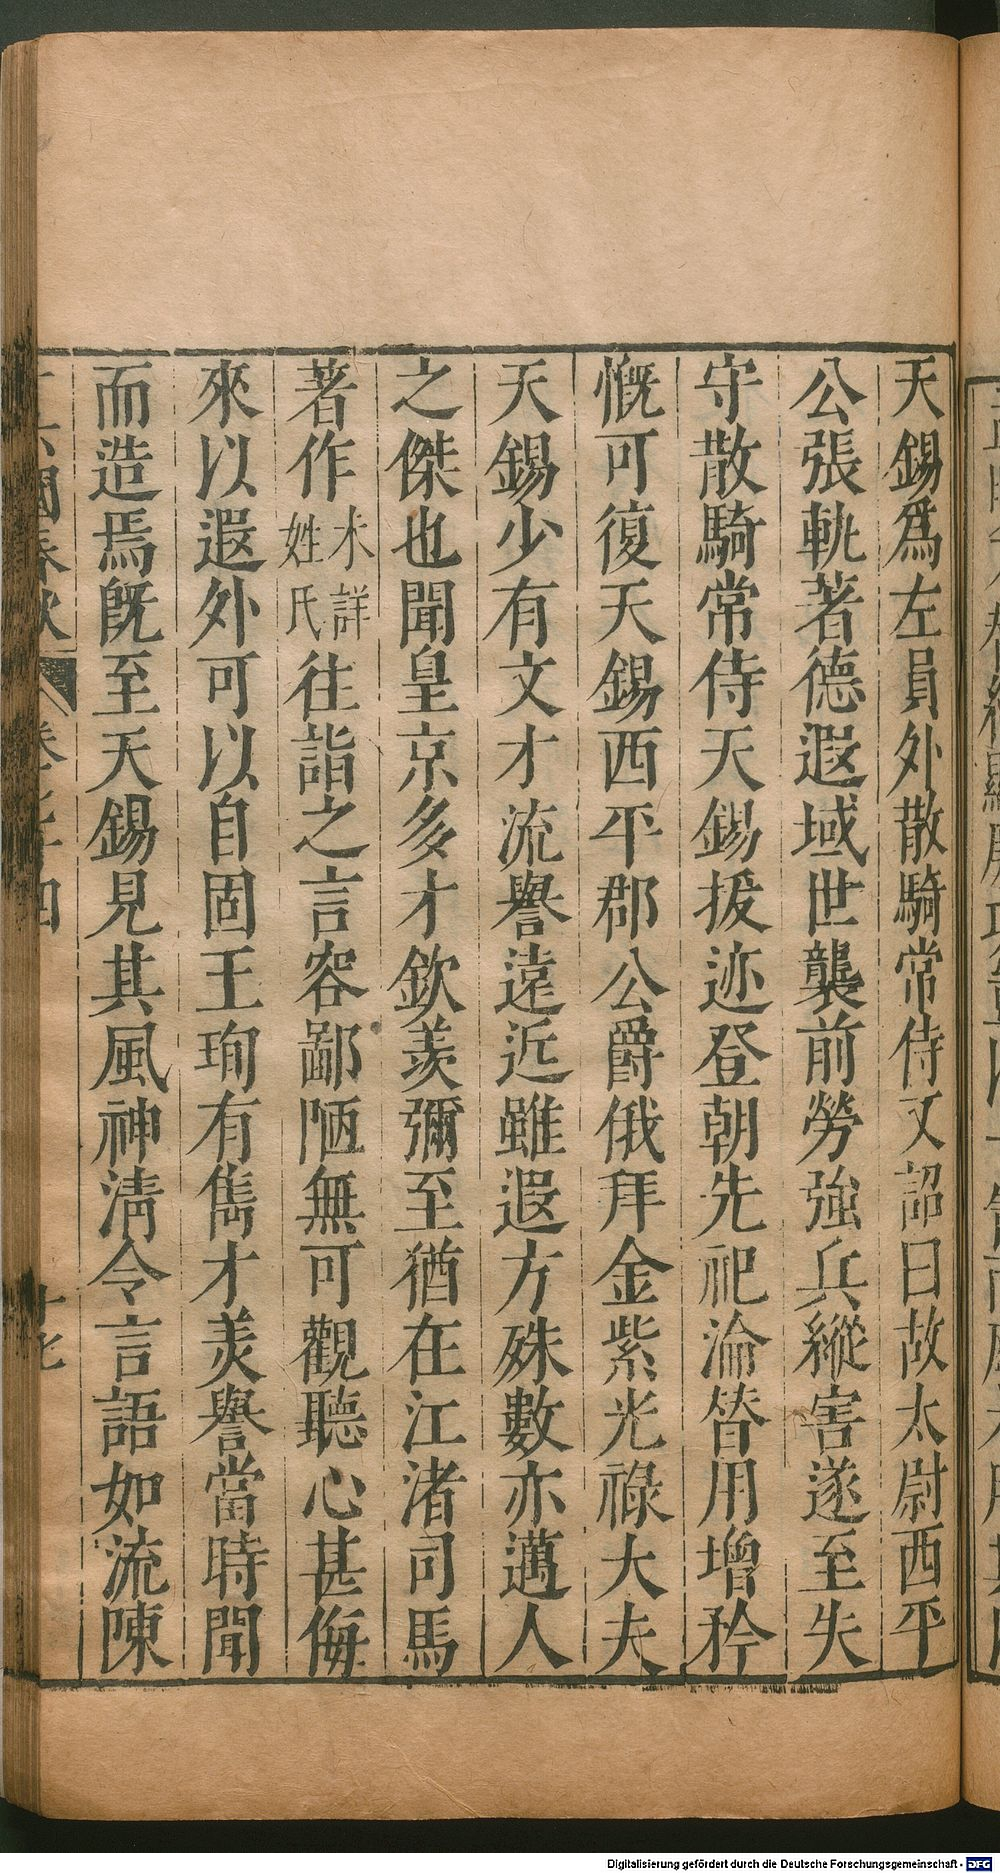 天錫爲左員外散騎常侍又詔曰故太尉西平
公張軌著德遐域世襲前勞強兵縱害遂至失
守散騎常侍天錫拔迹登朝先祀淪替用增矜
慨可復天錫西平郡公爵俄拜金紫光祿大夫
天錫少有文才流譽遠近雖遐方殊數亦邁人
之傑也聞皇京多才欽羨彌至猶在江渚司馬
著作未詳姓氏往詣之言容鄙陋無可觀聽心甚侮
來以遐外可以自固王珣有雋才美譽當時聞
而造焉旣至天錫見其風神清令言語如流陳
國春秋 卷七十四 十七
Digitalisierung gefördert durch die Deutsche Forschungsgemeinschaft - DFG